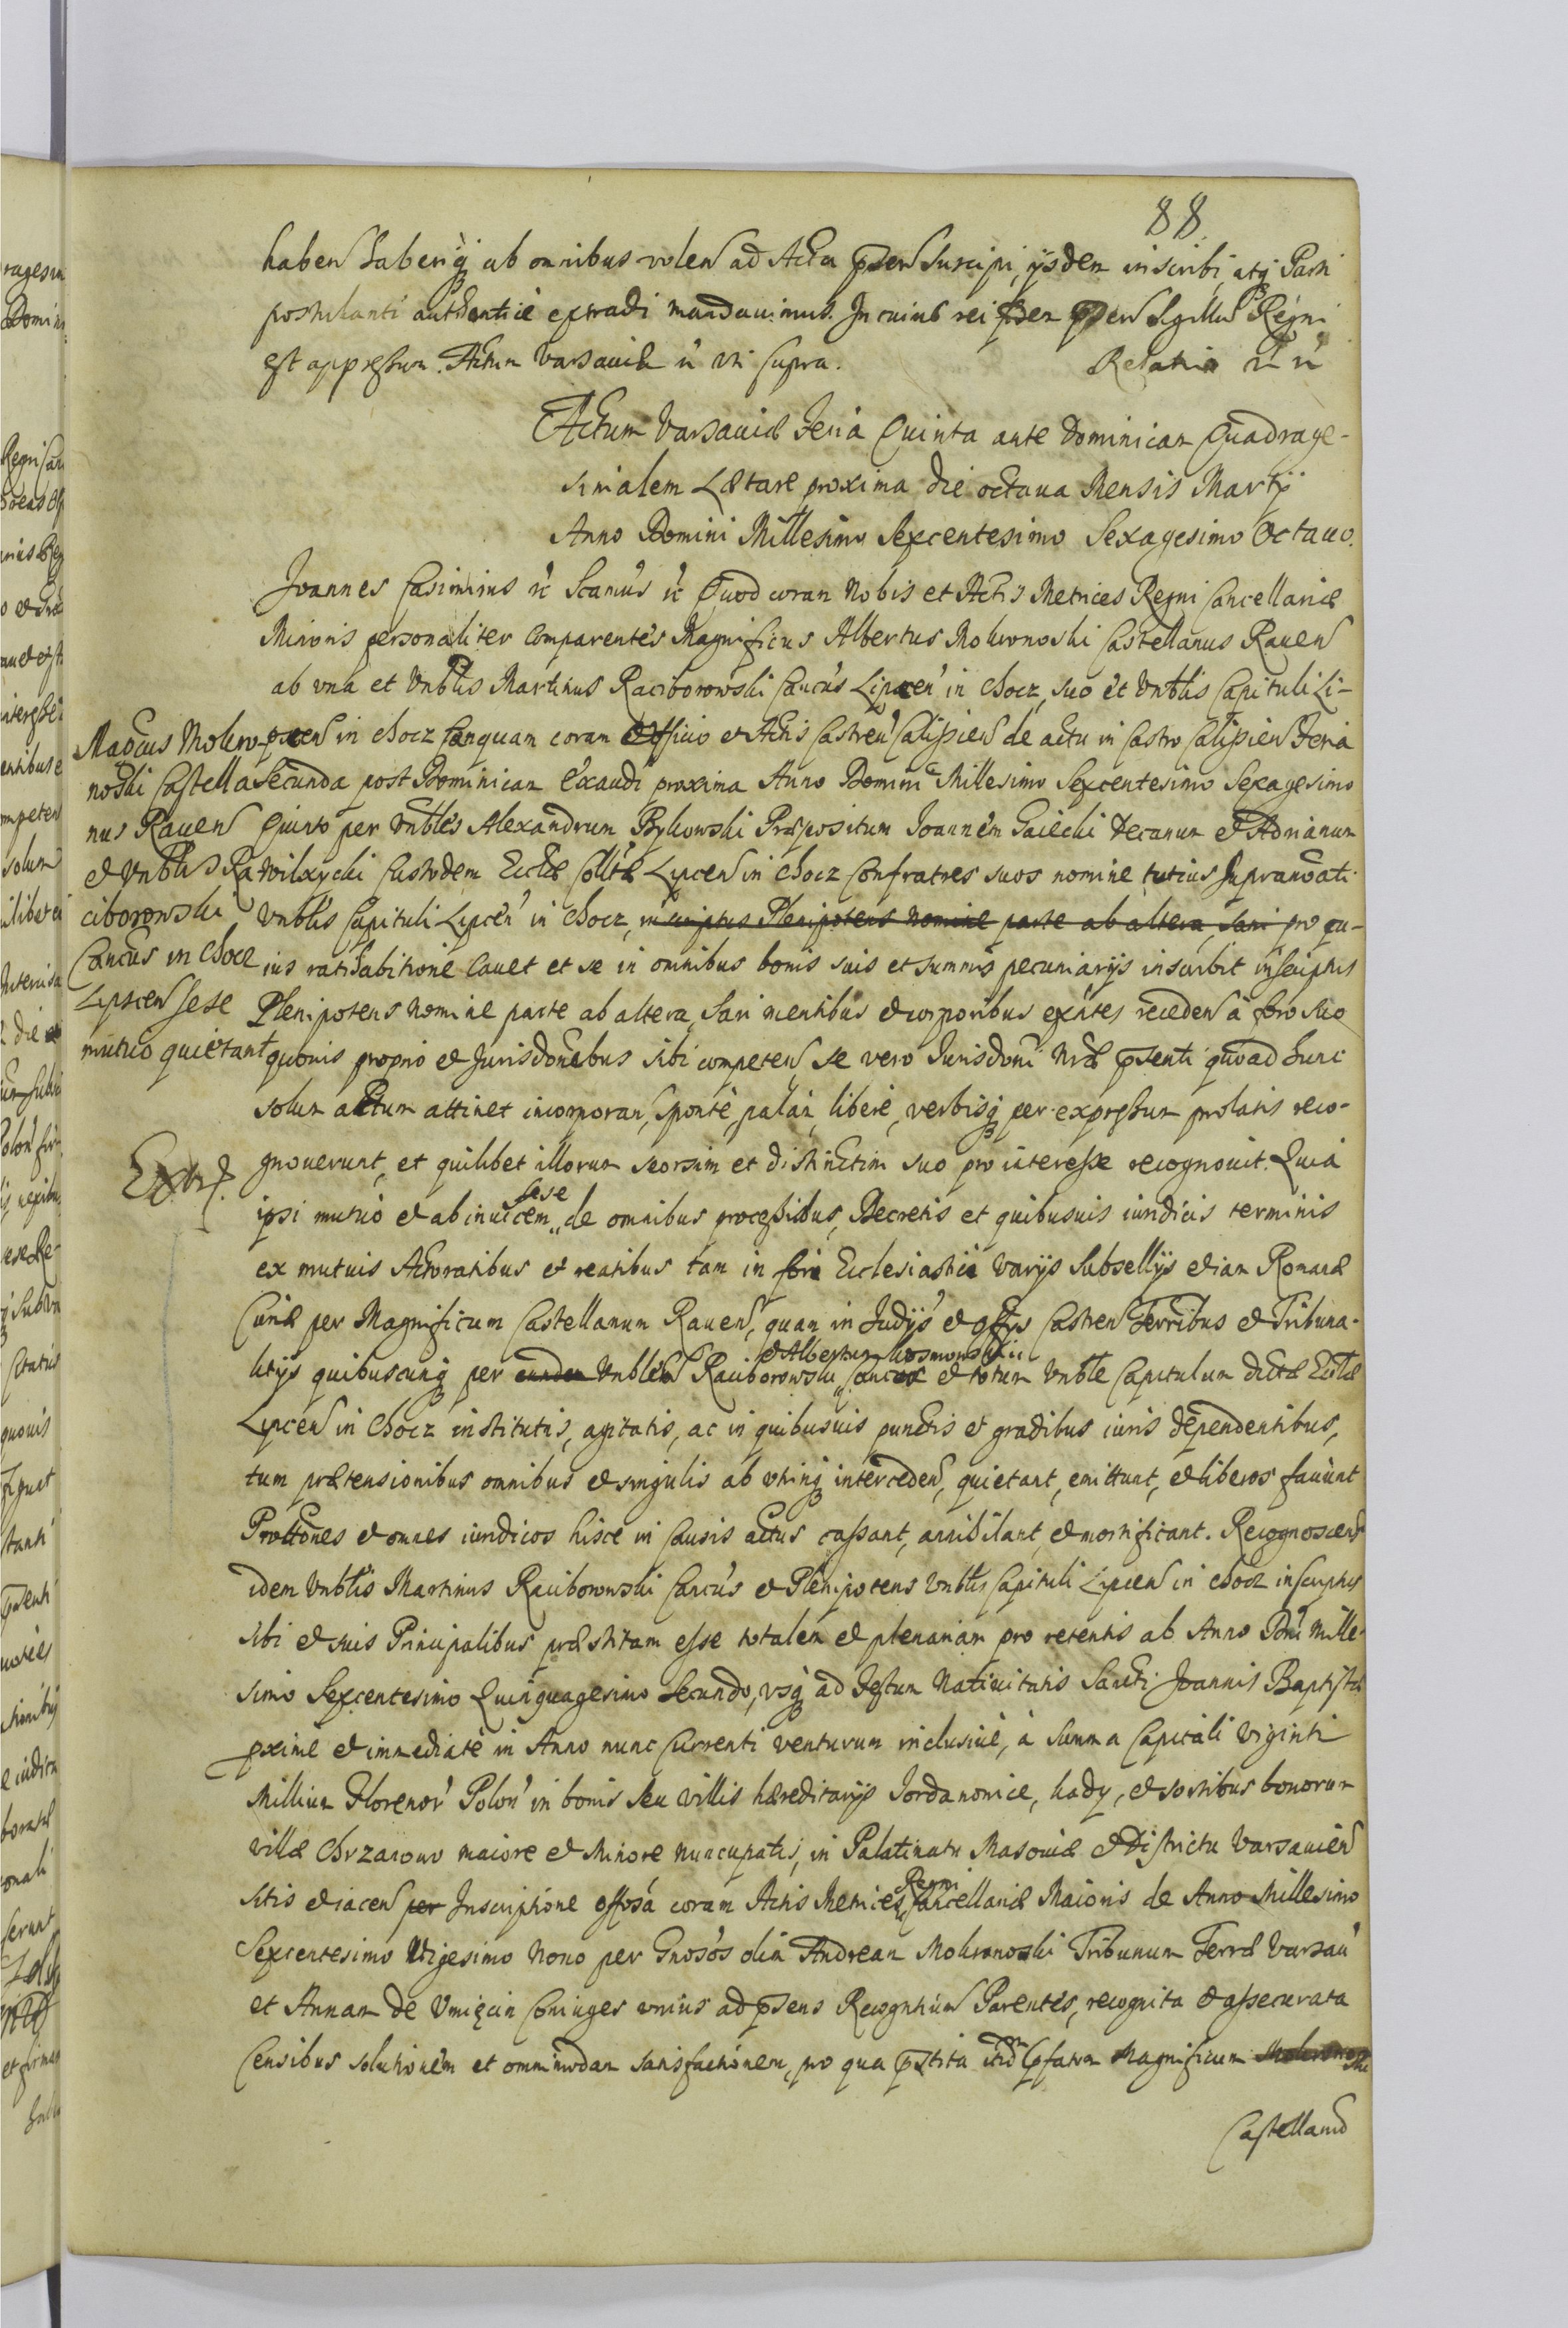 88
haben haberiq ab omnibus volen ad Acta pnsen Suscipi, ijsdem inscribi, atq Parti
postulanti authentice extradi mandauimus. In cuius rei fidem pnsen Sigillu Regni
est appressum. Actum Varsauiæ ut supra. Relatio
Actum Varsauiæ Feria Quinta ante Dominicam Quadrage-
simalem Lætare proxima die octaua Mensis Martij
Anno Domini Millesimo Sexcentesimo Sexagesimo Octauo.
Joannes Casimirus &c Quod coram Nobis et Actis Metrices Regni Cancellariæ
Minoris personaliter Comparentes Magnificus Albertus Mokronoski Castellanus Rauen
ab vna et Vnblis Martinus Raciborowski Cancus Lipcen in Chocz, suo et Vnblis Capituli Li-
pscen in Chocz tanquam coram Officio et Actis Castren Calisien de actu in Castro Calisien Feria
Secunda post Dominicam Exaudi proxima Anno Domini Millesimo Sexcentesimo Sexagesimo
Quinto per Vnbles Alexandrum Bykowski Præpositum Joannem Gaiecki Decanum et Adrianum
Wilxycki Custodem Eccliæ Colltæ Lipcen in Chocz Confratres suos nomine totius Supranoati
Vnblis Capituli Lipcen in Chocz, inscriptus Plenipotens nomine parte ab altera, Sani pro cu-
ius ratihabitione Cauet et se in omnibus bonis suis et summis pecuniarijs inscribit inscriptus
Plenipotens nomine parte ab altera, Sani mentibus et corporibus exntes receden à foro suo
quouis proprio et Jurisdonibus sibi competen, se vero Jurisdoni Nræ pnsenti quoad hunc
solum actum attinet incorporan, sponte, palam, libere, verbisq per expressum prolatis reco-
gnouerunt, et quilibet illorum seorsim et distinctim suo pro interesse recognouit. Quia
ipsi mutuo et ab inuicem sese de omnibus processibus, Decretis et quibusuis iuridicis terminis
ex mutuis Actoratibus et reatibus tam in foro Ecclesiastico varijs Subsellijs etiam Romanæ
Curiæ per Magnificum Castellanum Rauen, quam in Judijs et offijs Castren Terribus et Tribuna-
litijs quibuscunq per eundem Vnblem Raciborowski et Albertum Kosmowski Cancos et totum Vnble Capitulum dictæ Eccliæ
Lipcen in Chocz institutis, agitatis, ac in quibusuis punctis et gradibus iuris dependentibus,
tum prætensionibus omnibus et singulis ab vtrinq interceden, quietant, emittunt, et liberos faciunt
Prottones et omnes iuridicos hisce in Causis actus cassant, annihilant, et mortificant. Recognoscens
idem Vnblis Martinus Raciborowski Cancus et Plenipotens Vnblis Capituli Lipcen in Chocz inscriptus
sibi et suis Principalibus præstitam esse totalem et plenariam pro retentis ab Anno Dni Mille-
simo Sexcentesimo Quinquagesimo Secundo, vsq ad Festum Natiuitatis Sancti Joannis Baptistæ
pxime et immediate in Anno nunc Currenti venturum inclusiue, à Summa Capitali Viginti
Millium Florenor Polon in bonis seu villis hæreditarijs Jordanowice, Kady, et sortibus bonorum
villæ Chrzanowo maiore et Minore nuncupatis, in Palatinatu Masouiæ et Districtu Varsauien
sitis et iacen per Inscriptione offosa coram Actis Metrices Regni Cancellariæ Maioris de Anno Millesimo
Sexcentesimo Vigesimo Nono per Gnosos olim Andream Mokronoski Tribunum Terræ Varsau
et Annam de Vmięcin Coniuges vnius ad pnsens Recogntium Parentes, recognita et assecurata
Censibus solutionem et omnimodam satisfactionem, pro qua pstita itid pfatum Magnificum Mokronoski
Castellanu
Mag̃cus Mokro-
noski Castella
nus Rauen
et Vnblis Ra
ciborowski
Cancus in Chocz
Lipscen sese
mutuo quietant
Extr.